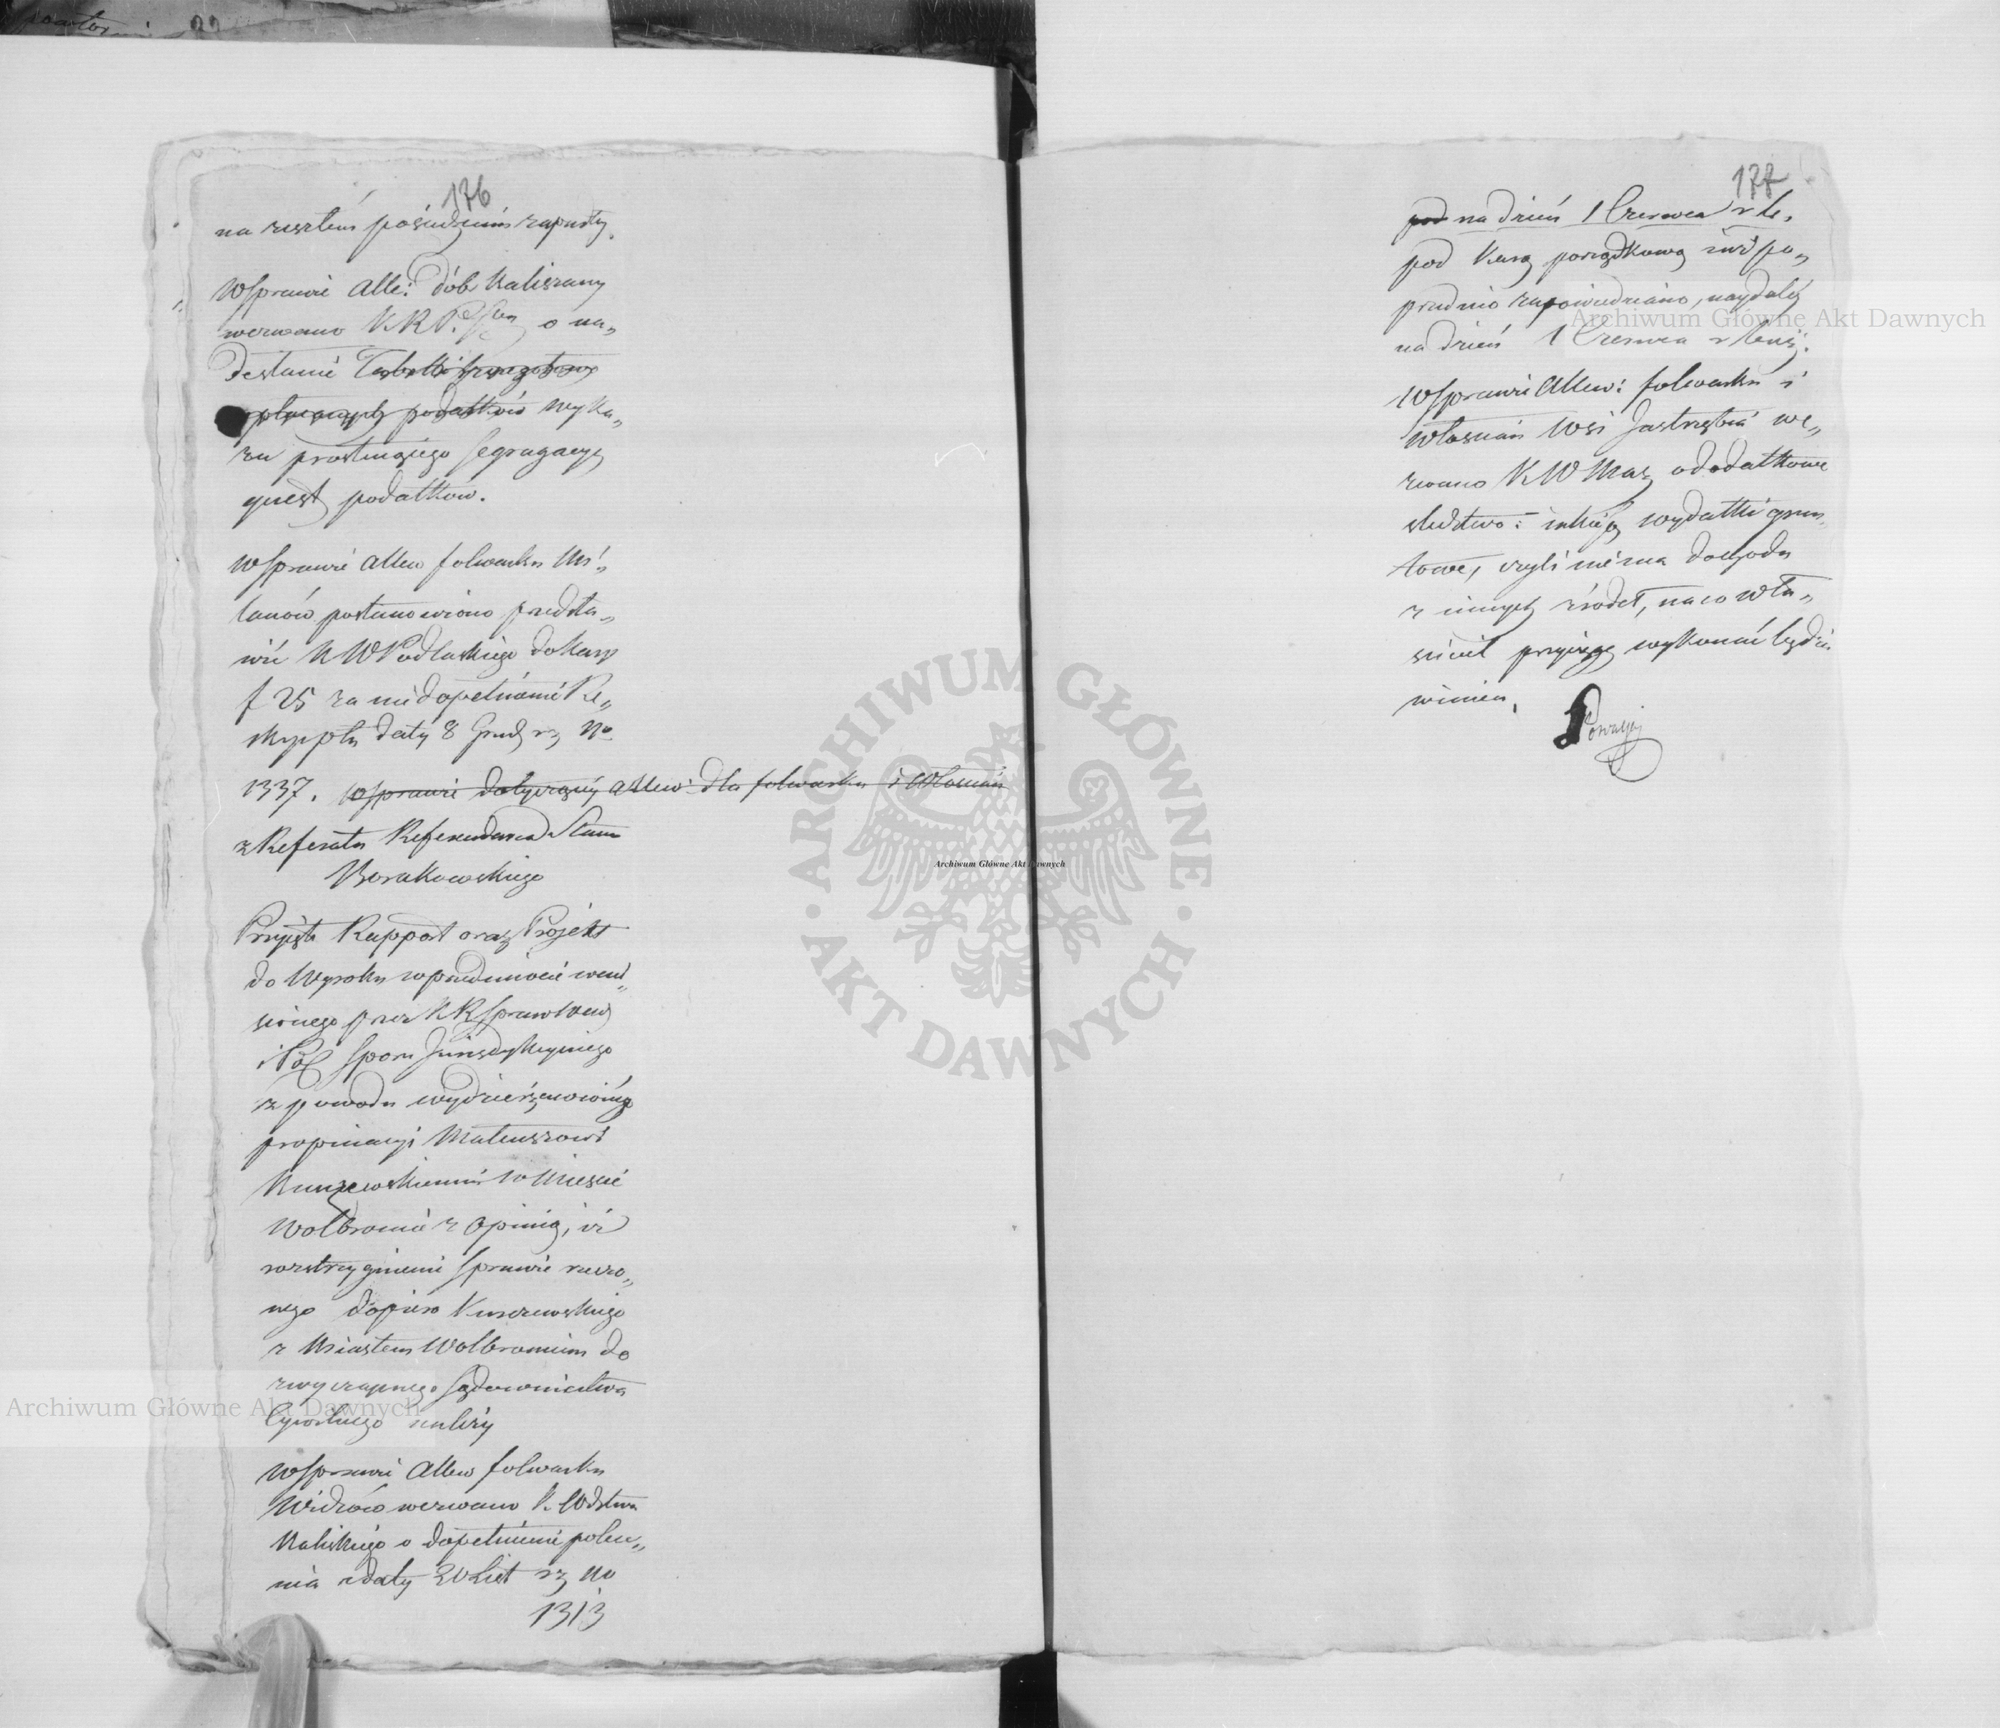 176
na zeszłem posiedzeniu zapadły.
W Sprawie Alle: dóbr Kaliszany
wezwano KRP. i Sk. o na„
desłanie Tabelli
opłacanych podatków wyka„
zu prostującego Segregacyę
gruest podatkow.
W Sprawie Allew folwarku Mi„
lanów postanowiono przedsta„
wić KW Podlaskiego do kary
f 25 za niedopełnienie Re„
skryptu daty 8 Grud rz No
1337. W Sprawie dotyczącéy Allew: dla folwarku i Włościan
z Referatu Referendarza Stanu
Borakowskiego
Przyięto Rapport oraz Projekt
do Wyroku w przedmiocie wnie„
sionego przez KRSprawiedl
i Pol Sporu Jurisdykcyinego
z powodu wydzierżawionéy
propinacyi Mateuszowi
Kuczewskiemu w Mieście
Wolbromie z opinią, iż
rozstrzygnienie Sprawie rzeczo„
nego dopiero Kuczewskiego
z Miastem Wolbromiem do
zwyczaynego Sądownictwa
Cywilnego należy
W Sprawie Allew folwarku
Widzów wezwano K. Wdztwa
Kaliskiego o dopełnienie polec„
nia z daty 20 List rz No
1313
177
pod na dzień 1 Czerwca r b.
pod karą porządkową iuż po„
przednio zapowiedzianą, naydaléy
na dzień 1 Czerwca r bieź.
W Sprawie Allew: folwarku i
włościan Wsi Jastrzębia we„
zwano KW Maz o dodatkowe
śledztwo: iakie są wydatki grun„
towe, czyli nie ma dochodu
z innych źródeł, na co wła„
ściciel przysięgę wykonać będzie
winien.
Archiwum Główne Akt Dawnych
Archiwum Główne Akt Dawnych
Archiwum Główne Akt Dawnych
ARCHIWUM GŁÓWNE · AKT DAWNYCH ·